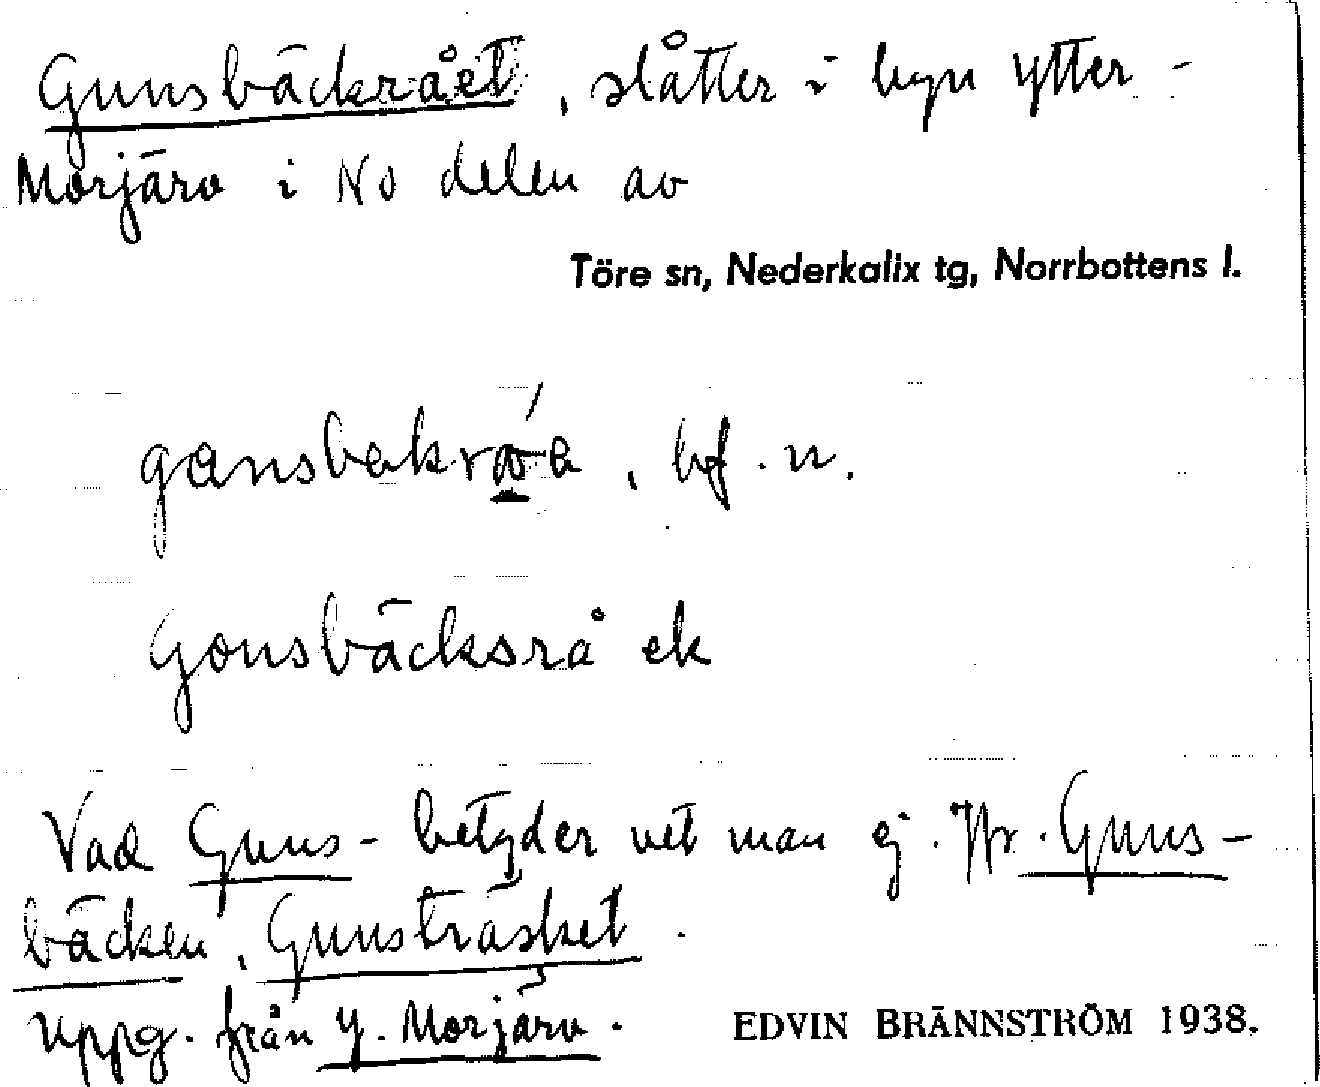 Gunsbäckrået, slåtter i byn Ytter-
Morjärv i NO delen av
Töre sn, Nederkalix tg, Norrbottens l.
bf. n.
Gonsbäcksrå ek
Vad Guns- betyder vet man ej. Jfr. Guns-
bäcken, Gunsträsket.
Uppg. från Y. Morjärv.
EDVIN BRÄNNSTRÖM 1938.